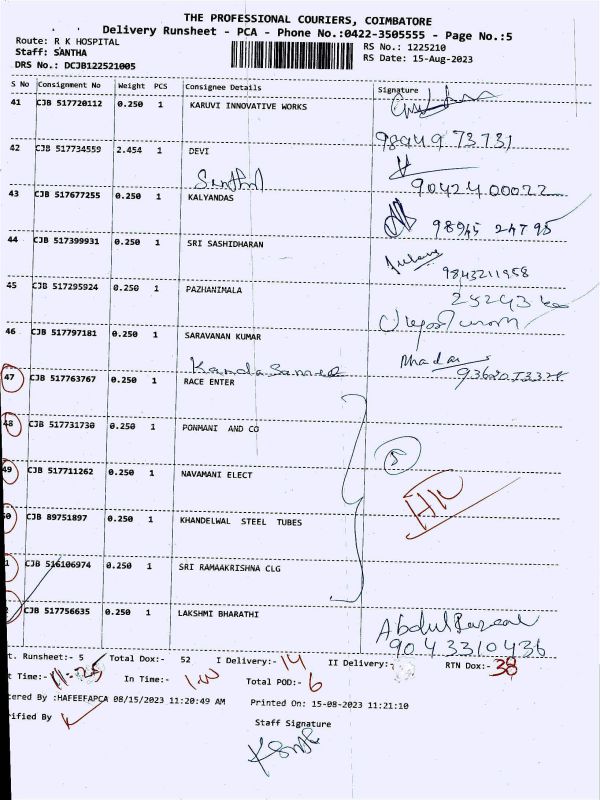 THE PROFESSIONAL COURIERS, COIMBATORE
Delivery Runsheet - PCA - Phone No.:0422-3505555 - Page No.:5
Route: R K HOSPITAL
RS No.: 1225210
Staff: SANTHA
RS Date: 15-Aug-2023
DRS No.: DCJB122521005
S No Consignment No Weight PCS Consignee Details Signature
41 CJB 517720112 0.250 1 KARUVI INNOVATIVE WORKS
98949 73731
42 CJB 517734559 2.454 1 DEVI
90424 00022
43 CJB 517677255 0.250 1 KALYANDAS
98945 24795
44 CJB 517399931 0.250 1 SRI SASHIDHARAN
9843211958
45 CJB 517295924 0.250 1 PAZHANIMALA
46 CJB 517797181 0.250 1 SARAVANAN KUMAR
47 CJB 517763767 0.250 1 RACE ENTER
48 CJB 517731730 0.250 1 PONMANI AND CO
5
49 CJB 517711262 0.250 1 NAVAMANI ELECT
CJB 89751897 0.250 1 KHANDELWAL STEEL TUBES
CJB 516106974 0.250 1 SRI RAMAAKRISHNA CLG
CJB 517756635 0.250 1 LAKSHMI BHARATHI
90433 10436
t. Runsheet:- 5 Total Dox:- 52 I Delivery:- 14 II Delivery:- RTN Dox:- 38
t Time:- 11:25 In Time:- Total POD:- 6
tered By :HAFEEFAPCA 08/15/2023 11:20:49 AM Printed On: 15-08-2023 11:21:10
rified By
Staff Signature